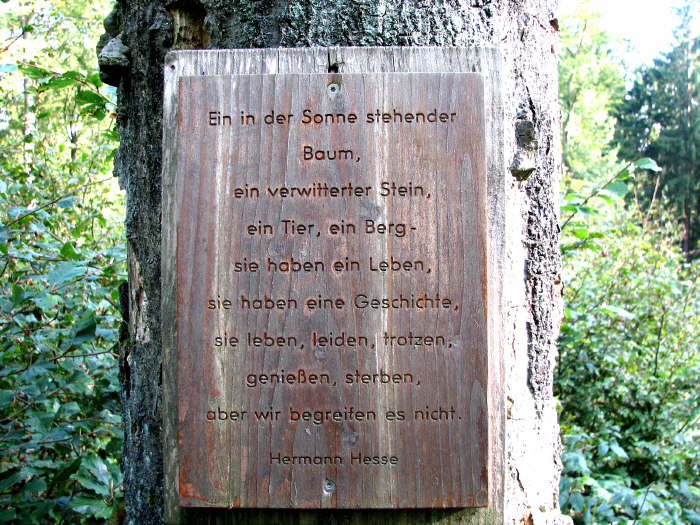 Ein in der Sonne stehender
Baum,
ein verwitterter Stein,
ein Tier, ein Berg-
sie haben ein Leben,
sie haben eine Geschichte,
sie leben, leiden, trotzen,
genießen, sterben,
aber wir begreifen es nicht.
Hermann Hesse